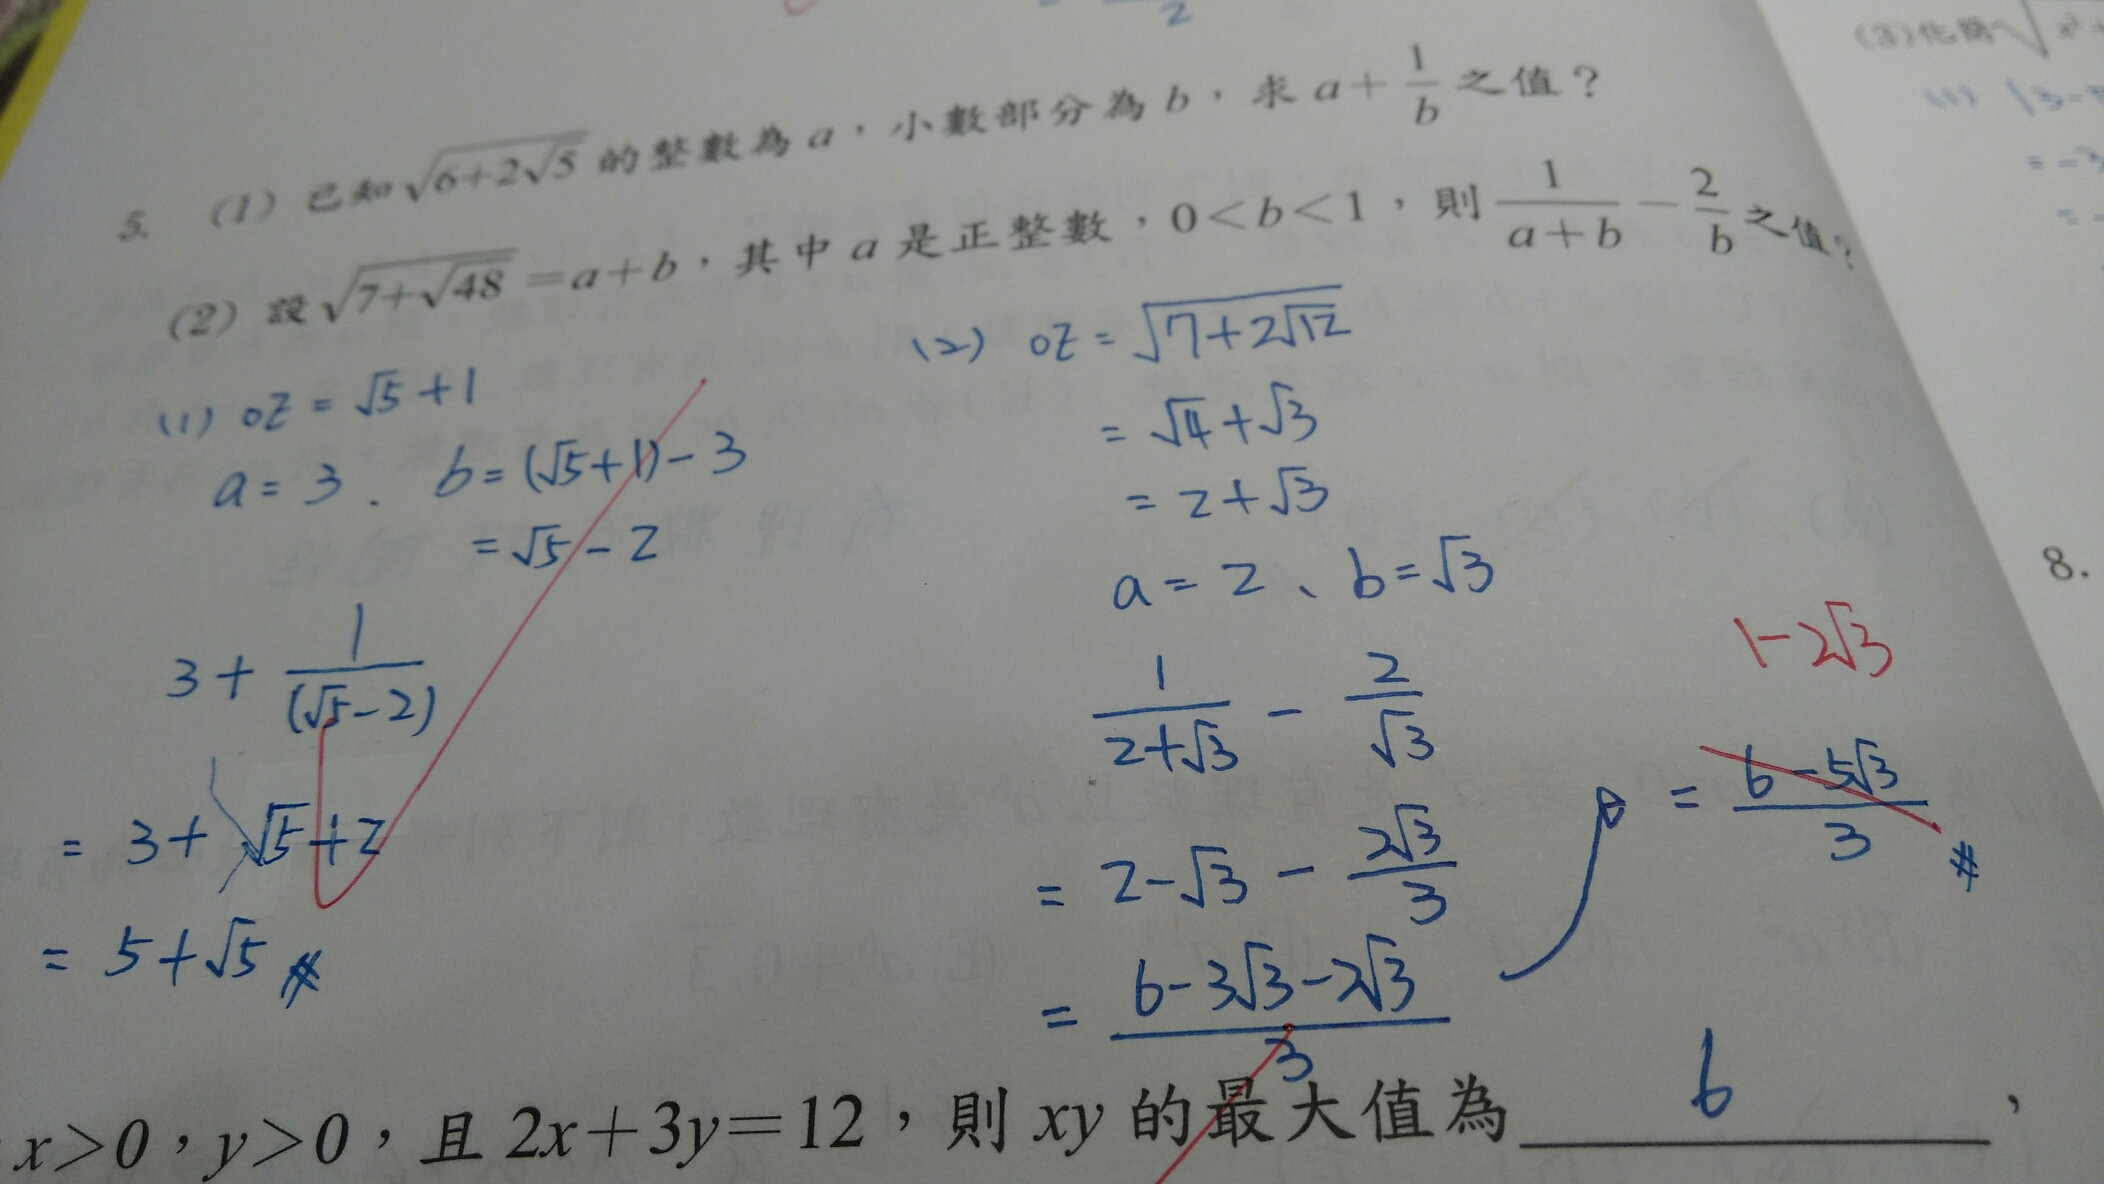 2
(3)化簡√x²+
(1) |3-
= -3
5. (1) 已知√(6+2√5) 的整數為 a，小數部分為 b，求 a+1/b 之值？
(2) 設√(7+√48) =a+b，其中 a 是正整數，0<b<1，則 1/(a+b) - 2/b 之值？
(1) oz = √5+1
a = 3 . b = (√5+1)-3
= √5-2
3+ 1/(√5-2)
= 3+ √5+2
= 5+√5 #
(2) oz = √(7+2√12)
= √4+√3
= 2+√3
a = 2 、 b = √3
1/(2+√3) - 2/√3
= 2-√3 - 2√3/3
= (6-3√3-2√3)/3
1-2√3
= (6-5√3)/3 #
8.
x>0，y>0，且 2x+3y=12，則 xy 的最大值為 6 ，